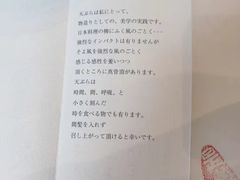 天ぷらは私にとって、
物造りとしての、美学の実践です。
日本料理の柳にふく風のごとく…
強烈なインパクトは有りませんが
そよ風を強烈な風のごとく
感じる感性を養いつつ
頂くところに真骨頂があります。
天ぷらは
時間、間、呼吸、と
小さく刻んだ
時を食べる物でも有ります。
間髪を入れず
召し上がって頂けると幸いです。